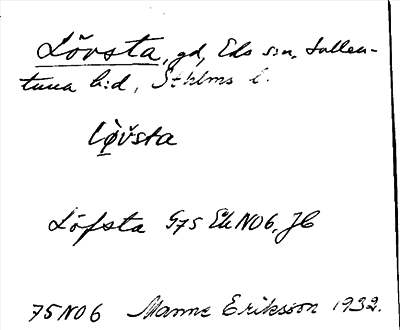 Lövsta, gd, Eds s:n, Sollen-
tuna h:d, Sthlms l.
lø̀v̌sta
Löfsta G75 Ek NO6, JC
75NO6 Manne Eriksson 1932.